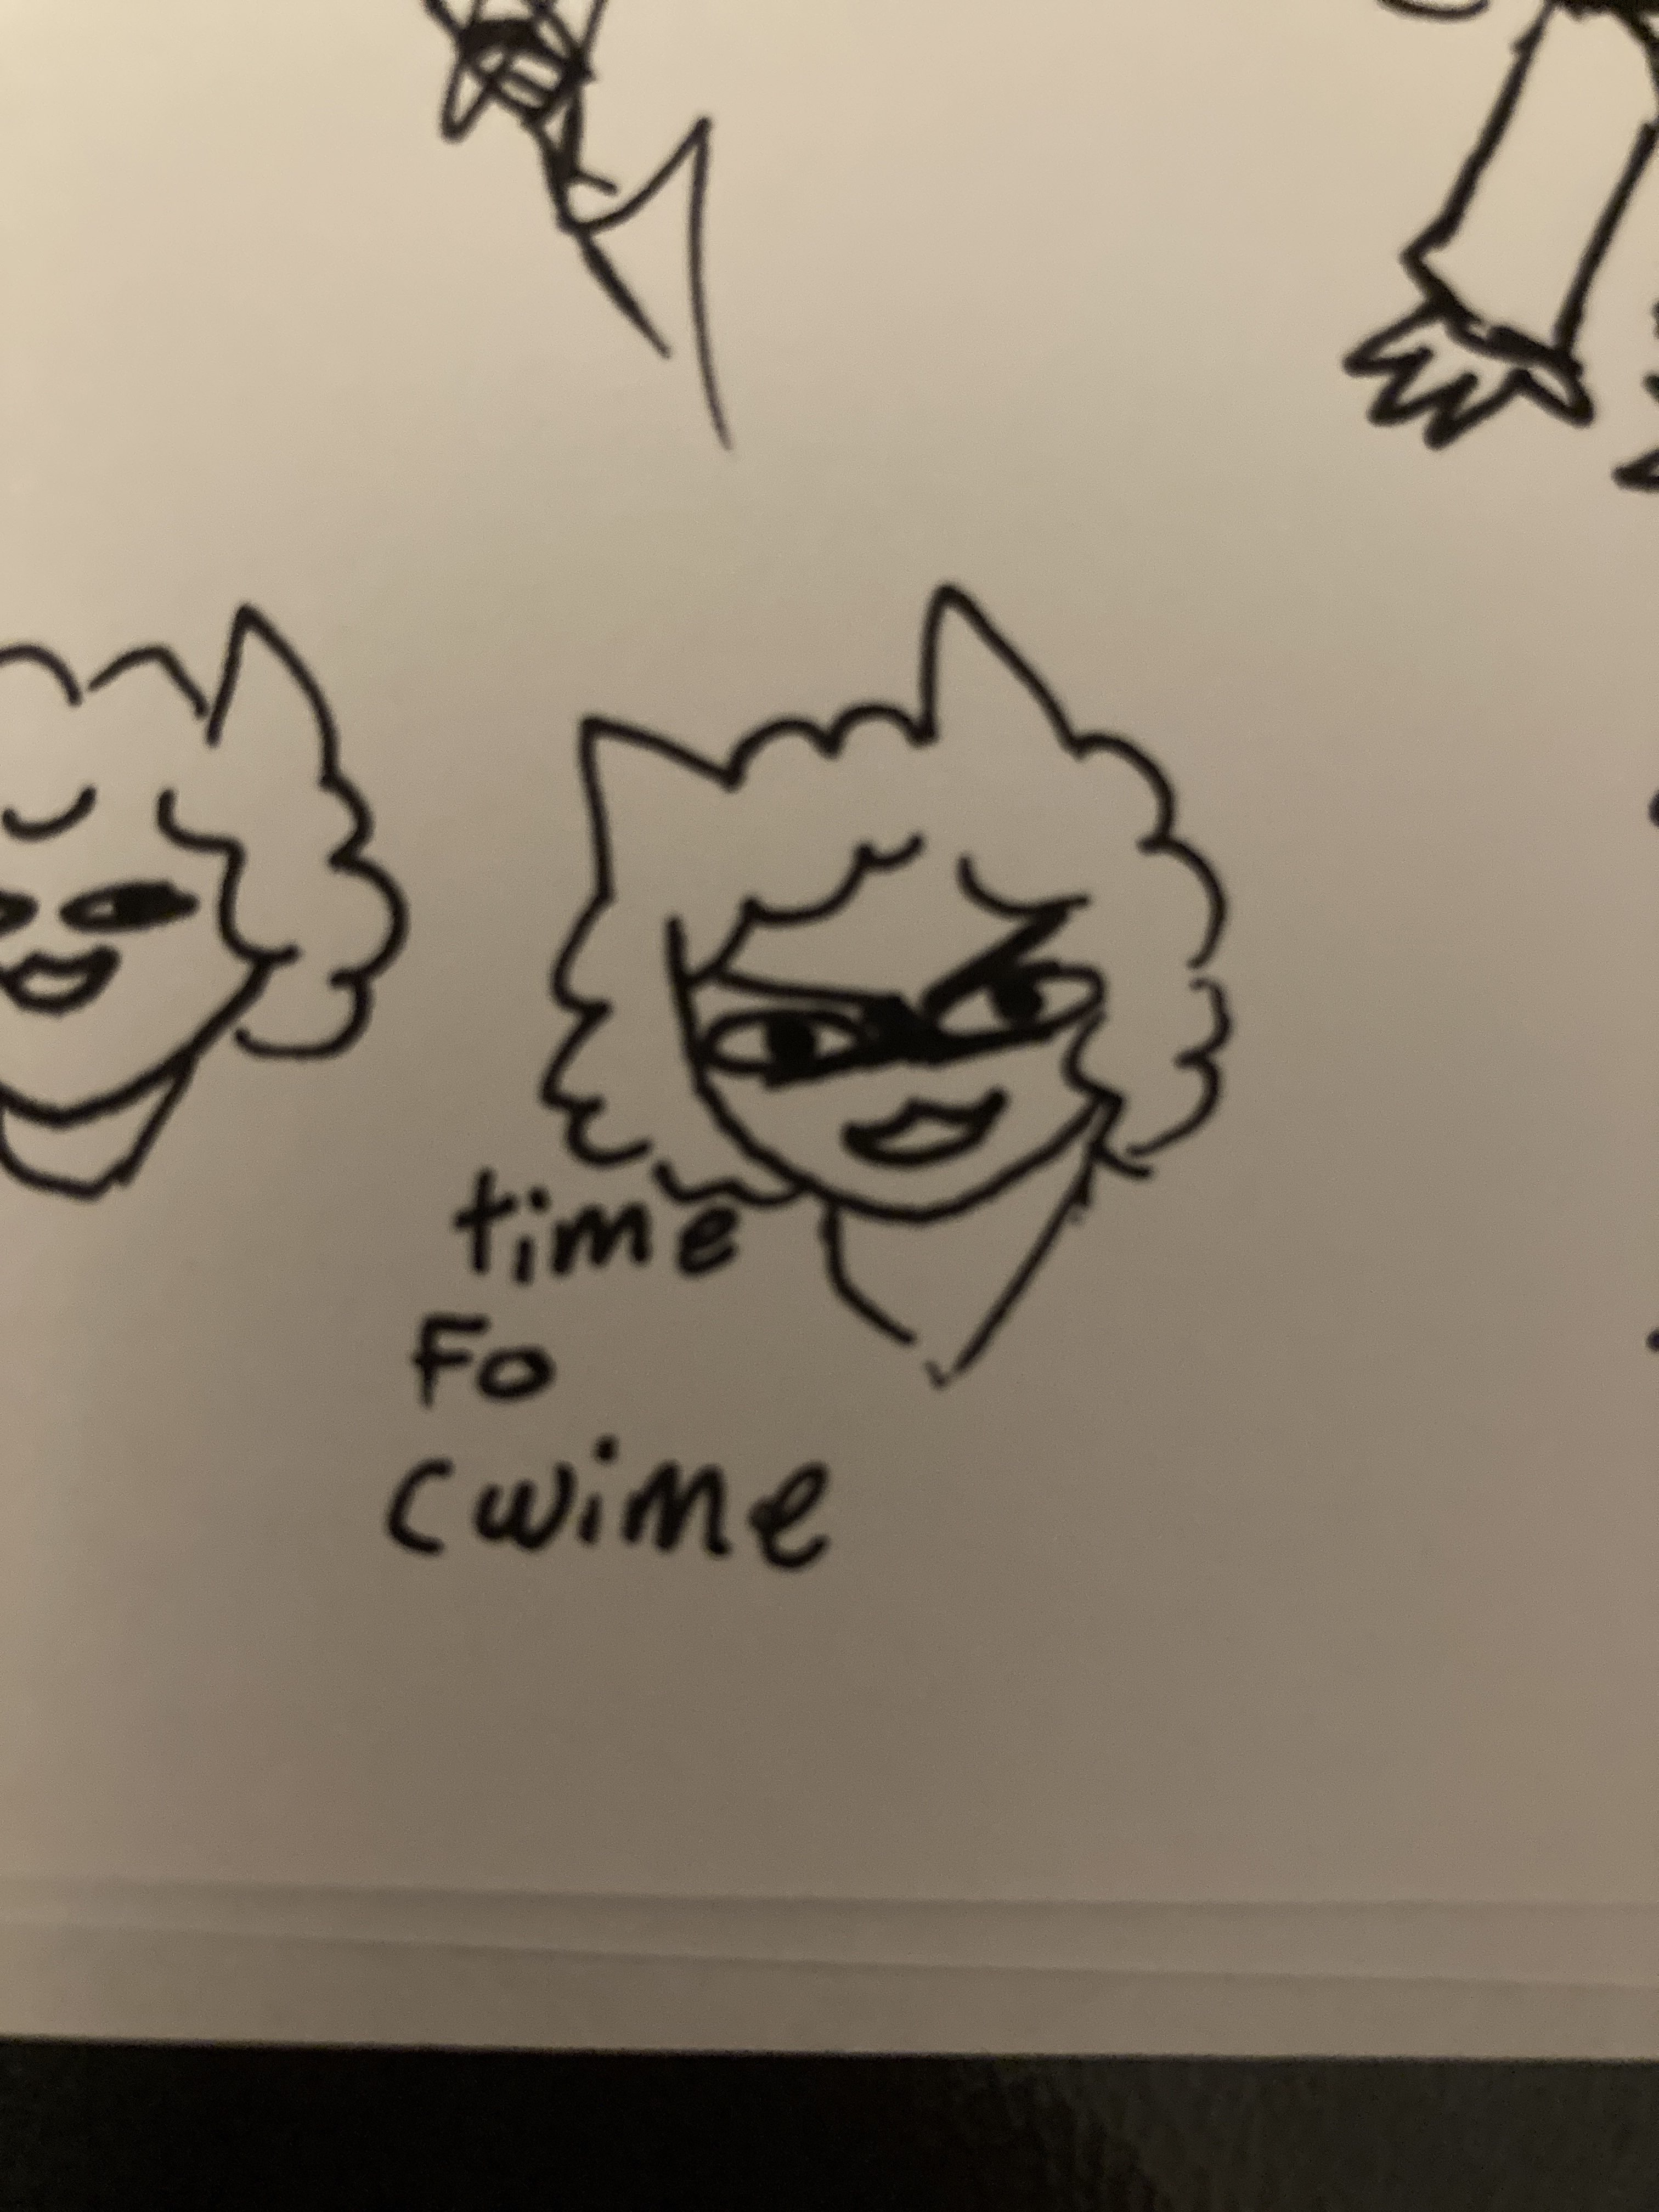 time
Fo
cwime